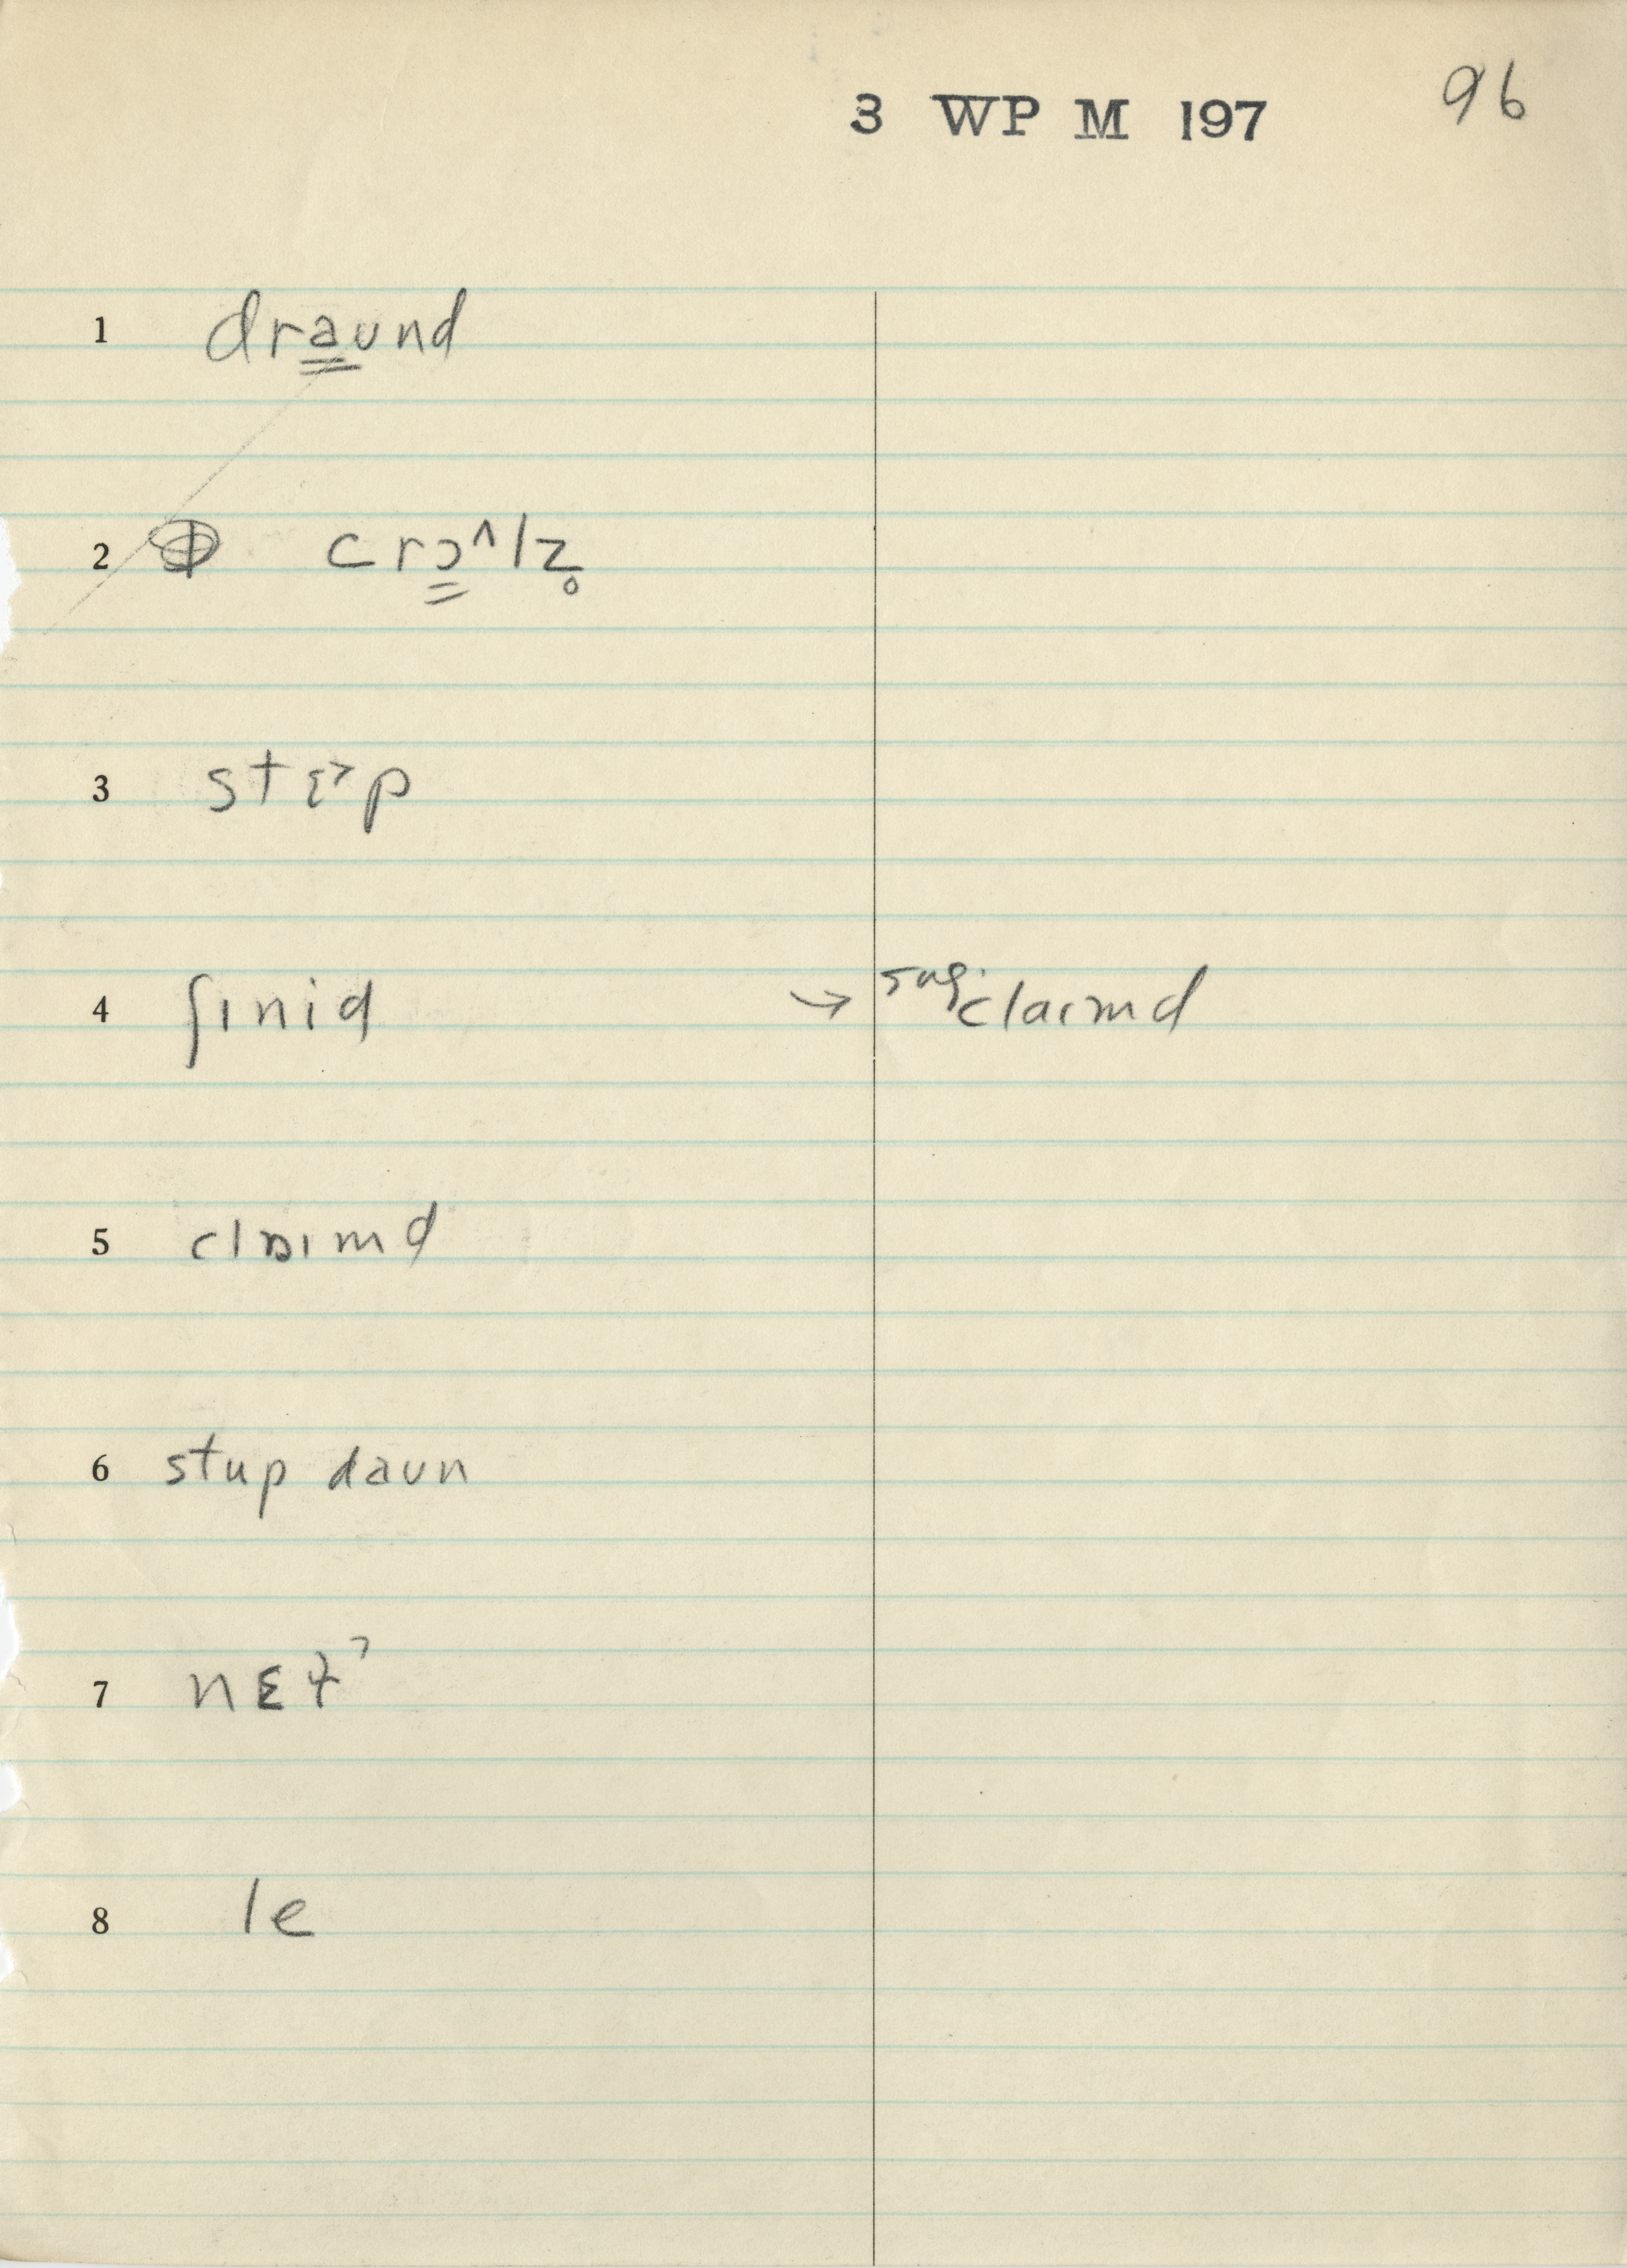 3 WP M 197 96
1 draund
2 crɔ^lz̥
3 stɛ>p
4 ʃɪnid → sug. claɪmd
5 clɒɪmd
6 stup daʊn
7 nɛt
8 le